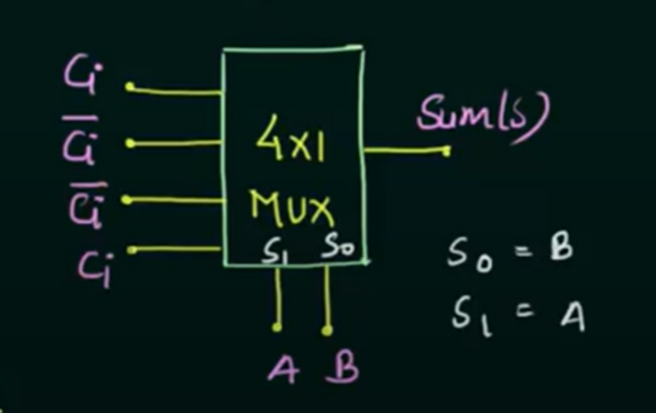 Ci
C̅i̅
C̅i̅
Ci
4x1
MUX
S1 S0
A B
Sum(s)
S0 = B
S1 = A